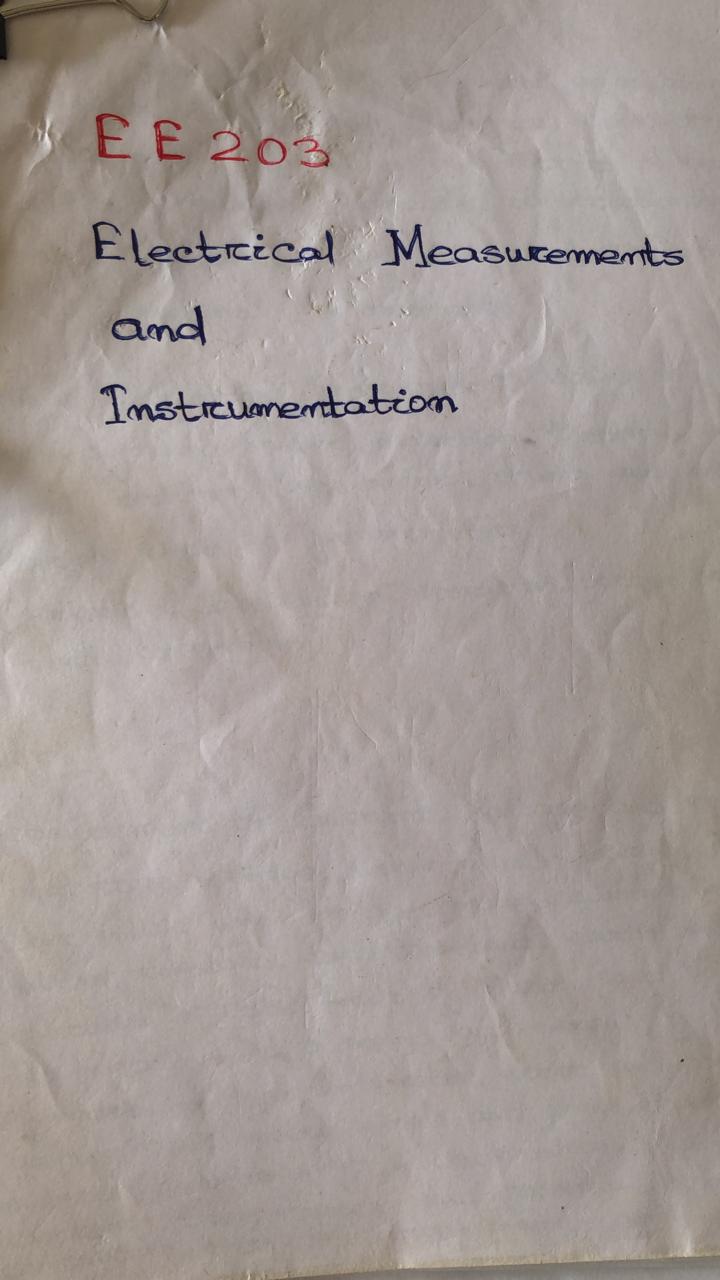 EE203
Electrical Measurements
and
Instrumentation